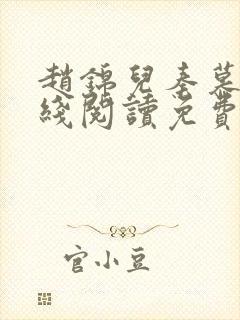 趙錦兒秦慕
綫閱讀免費
官小豆